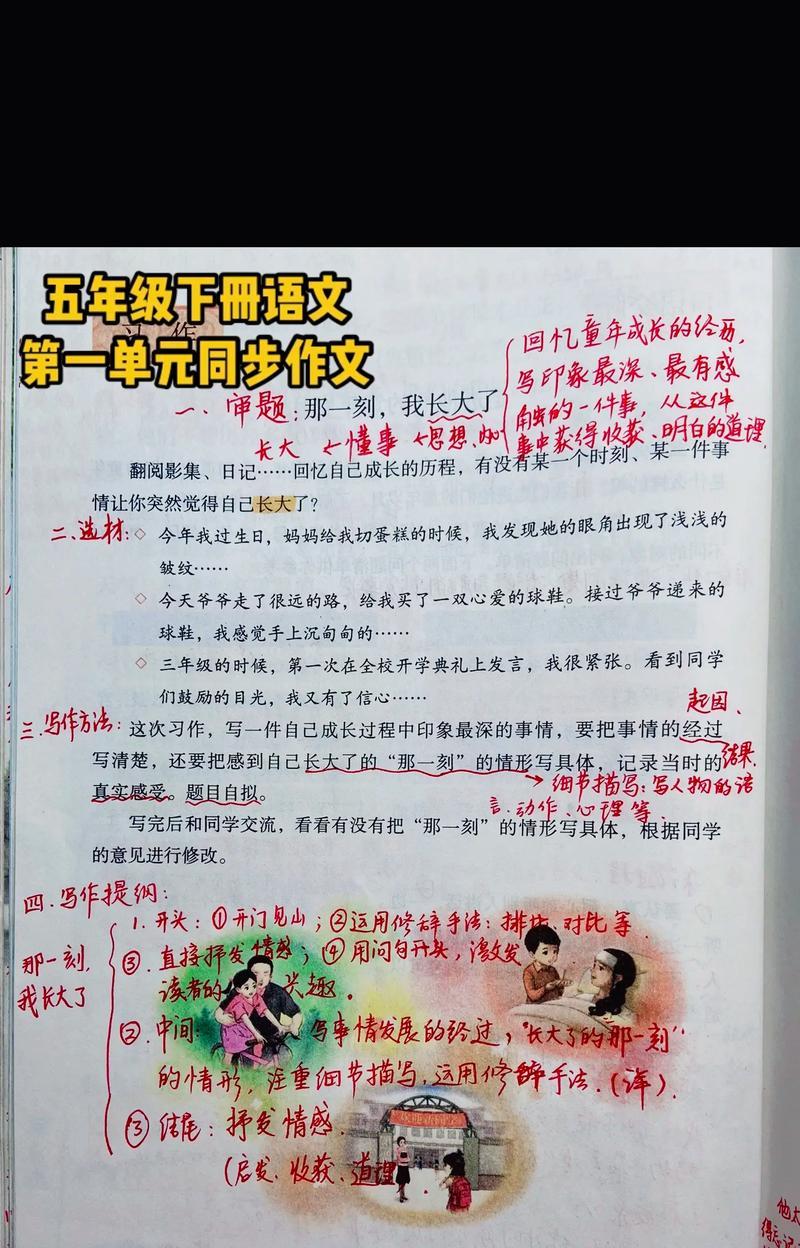 五年级下册语文
习作
第一单元同步作文
一、审题:那一刻,我长大了
回忆童年成长的经历,
写印象最深、最有感
触的一件事,从这件
事中获得收获、明白的道理
长大 ← 懂事 ← 思想、
翻阅影集、日记……回忆自己成长的历程,有没有某一个时刻、某一件事
情让你突然觉得自己长大了?
二、选材:◇ 今年我过生日,妈妈给我切蛋糕的时候,我发现她的眼角出现了浅浅的
皱纹……
◇ 今天爷爷走了很远的路,给我买了一双心爱的球鞋。接过爷爷递来的
球鞋,我感觉手上沉甸甸的……
◇ 三年级的时候,第一次在全校开学典礼上发言,我很紧张。看到同学
们鼓励的目光,我又有了信心……
起因、
三、写作方法:这次习作,写一件自己成长过程中印象最深的事情,要把事情的经过
写清楚,还要把感到自己长大了的“那一刻”的情形写具体,记录当时的
结果.
真实感受。题目自拟。
→ 细节描写:写人物的语
言、动作、心理等.
写完后和同学交流,看看有没有把“那一刻”的情形写具体,根据同学
的意见进行修改。
四、写作提纲:
那一刻,
我长大了
1. 开头:①开门见山;②运用修辞手法:排比、对比等.
③.直接抒发情感;④用问句开头,激发
读者的兴趣。
②.中间:写事情发展的经过,“长大了的那一刻”
的情形,注重细节描写,运用修辞手法.(详).
③结尾:抒发情感.
(启发、收获、道理
他太
得忘记